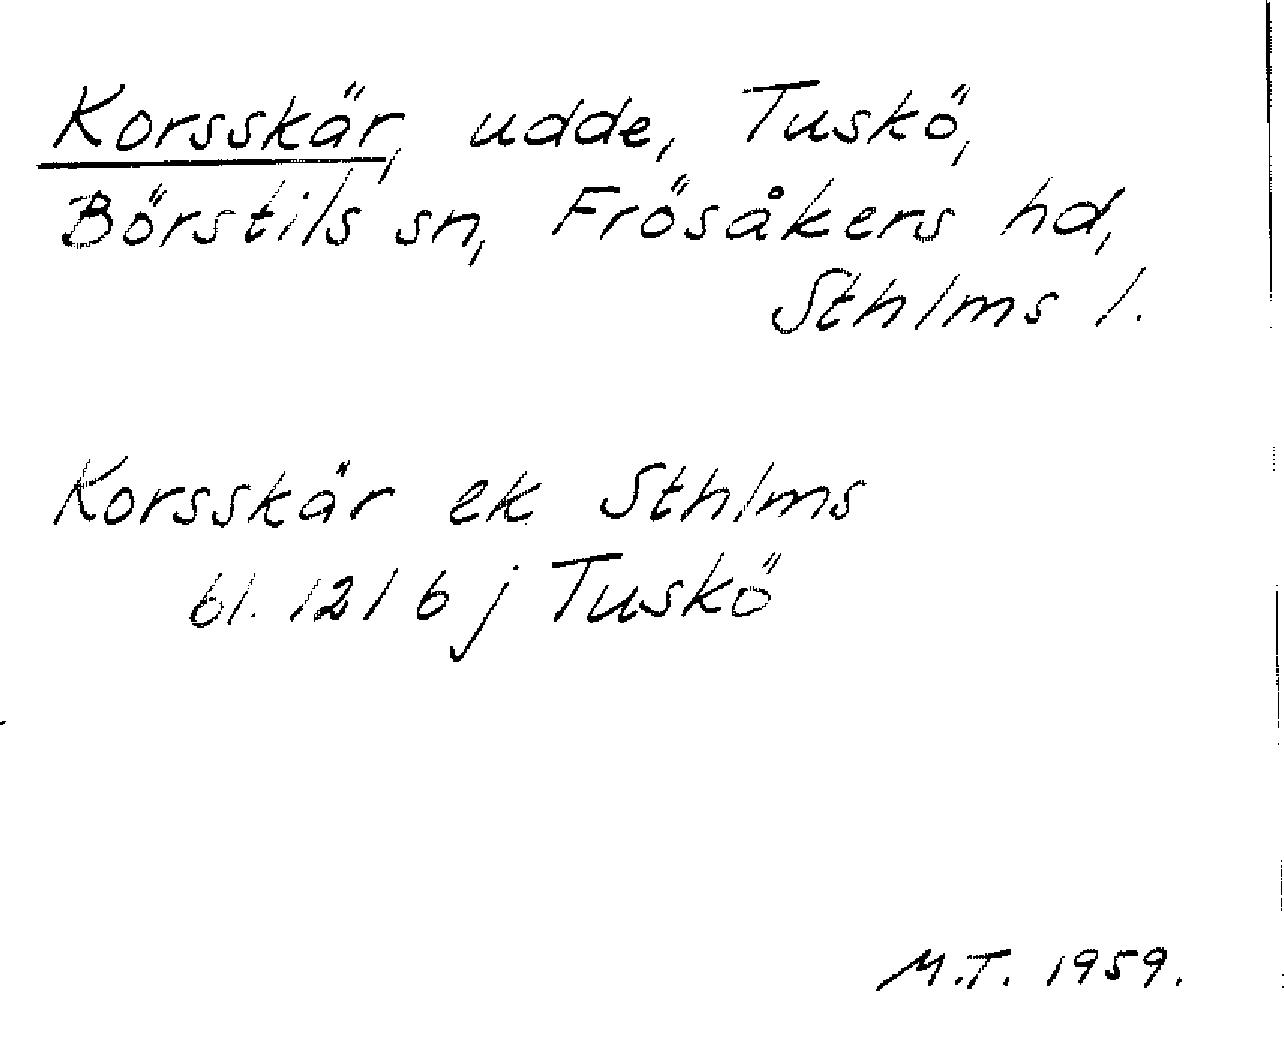 Korsskär, udde, Tuskö,
Börstils sn, Frösåkers hd,
Sthlms l.
Korsskär ek Sthlms
bl. 121 6 j Tuskö
M.T. 1959.